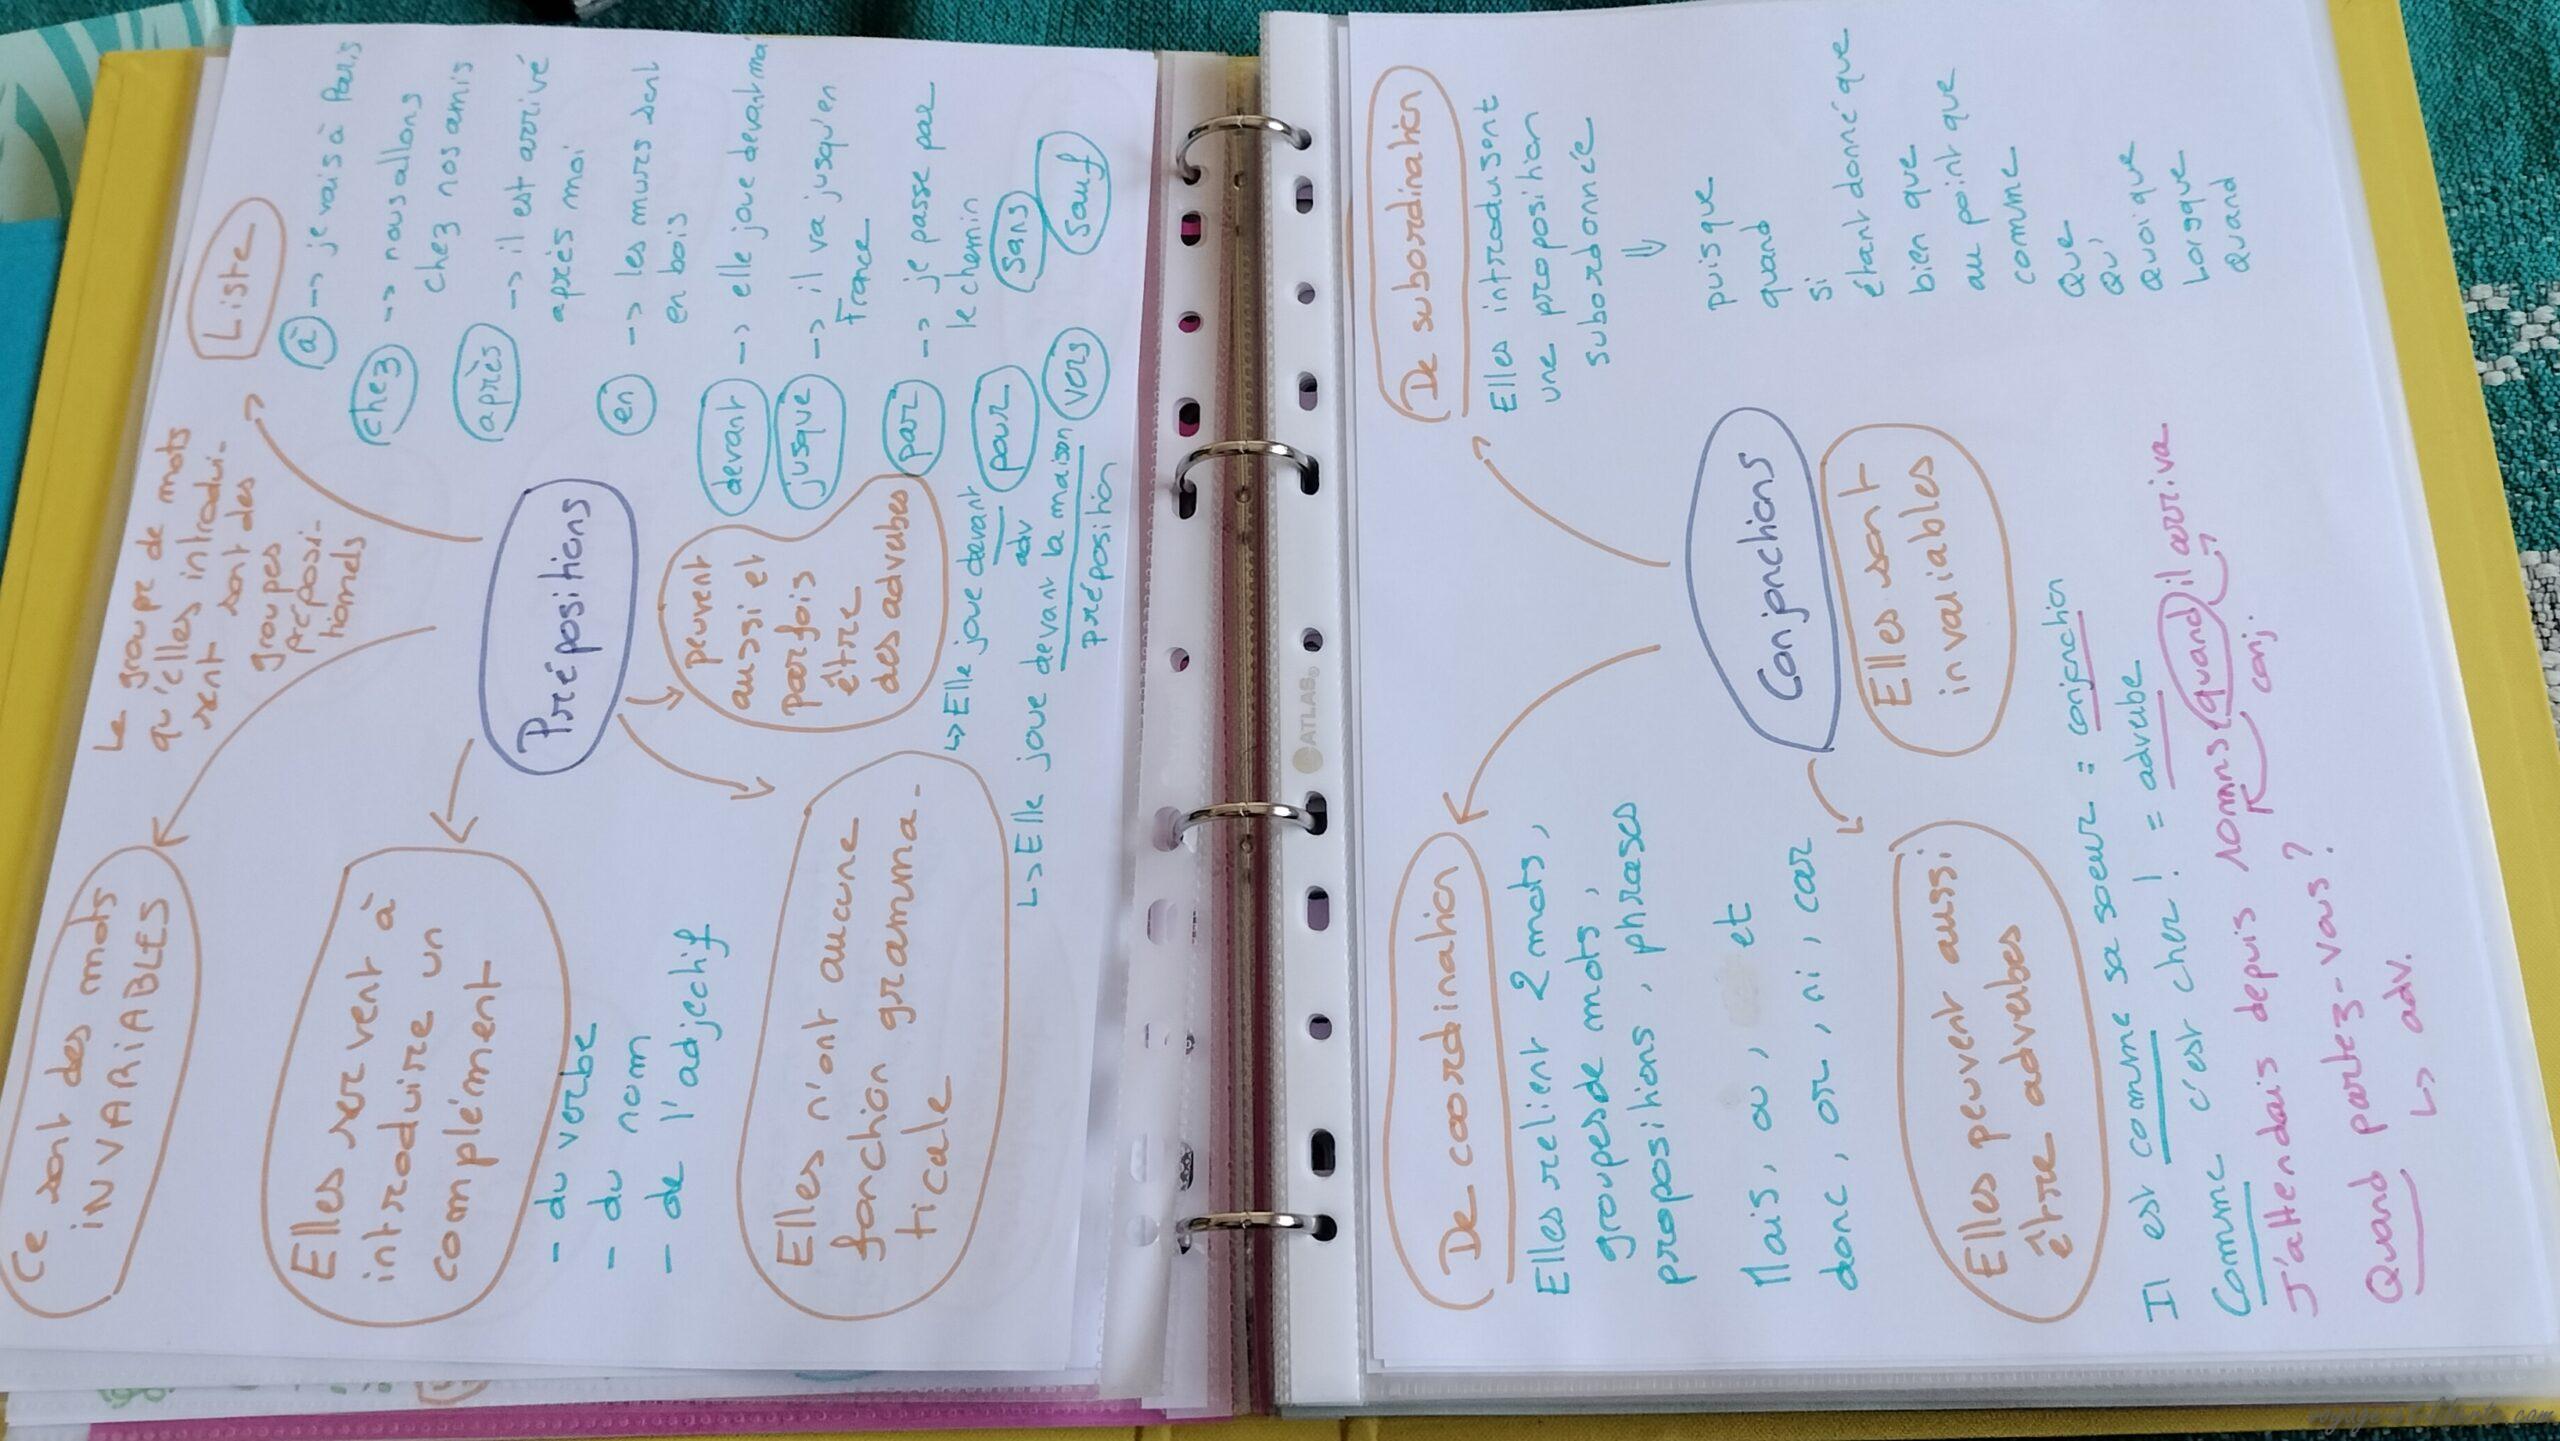 Ce sont des mots
INVARIABLES
Le groupe de mots
qu'elles introdui-
sent sont des
groupes
préposi-
tionnels
Liste
à -> je vais à Paris
chez -> nous allons
chez nos amis
après -> il est arrivé
après moi
en -> les murs sont
en bois
devant -> elle joue devant moi
jusque -> il va jusqu'en
France
par -> je passe par
le chemin
pour sans
vers sauf
Prépositions
Elles servent à
introduire un
complément
- du verbe
- du nom
- de l'adjectif
peuvent
aussi et
parfois
être
des adverbes
Elles n'ont aucune
fonction gramma-
ticale
↳ Elle joue devant
adv
↳ Elle joue devant la maison
préposition
De coordination
Elles relient 2 mots,
groupes de mots,
propositions, phrases
Mais, ou, et
donc, or, ni, car
De subordination
Elles introduisent
une proposition
subordonnée
⇓
puisque
quand
si
étant donné que
bien que
au point que
comme
que
qu'
quoique
Lorsque
quand
Conjonctions
Elles sont
invariables
Elles peuvent aussi
être adverbes
Il est comme sa soeur : = conjonction
Comme c'est cher ! = adverbe
J'attendais depuis quand il arriva
conj.
Quand partez-vous ?
↳ adv.
ATLAS